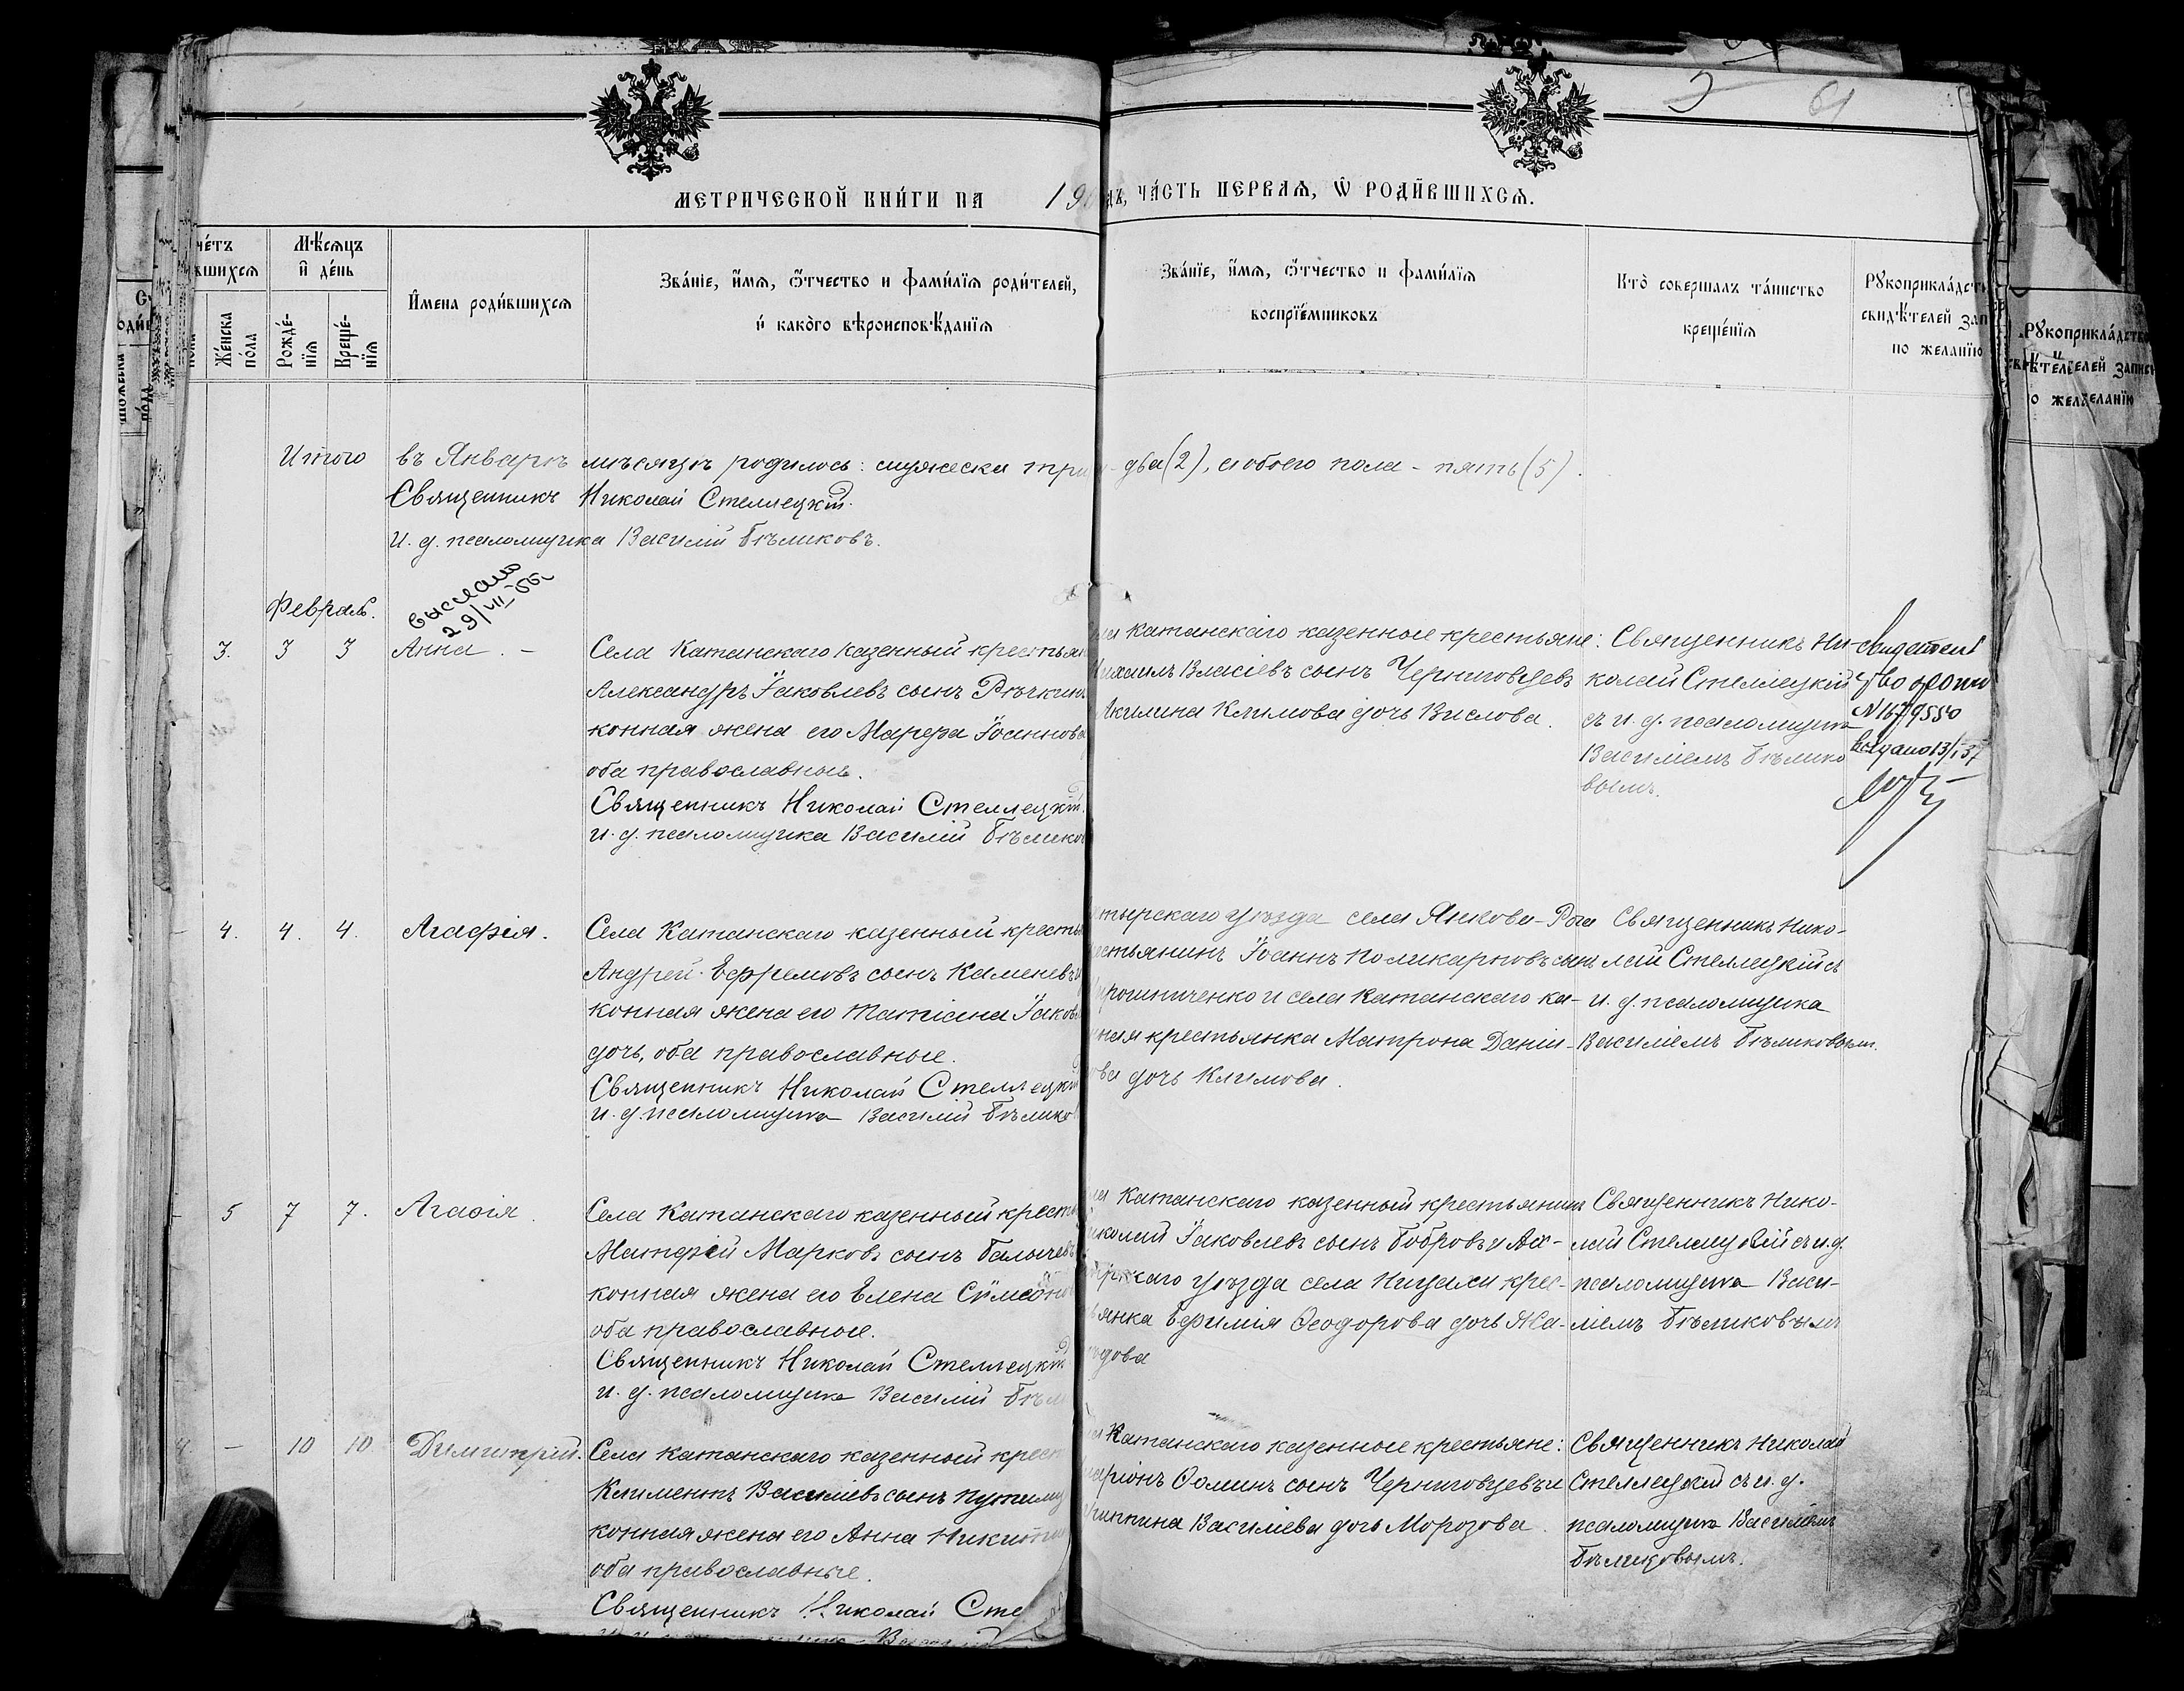 61
МЕТРИЧЕСКОЙ КНИГИ НА 190
ЧАСТЬ ПЕРВАЯ, Ѡ РОДИВШИХСЯ.
Мѣсяцъ и день
Женска пола
Рождéнія
Крещéнія
Имена родившихся
Званіе, имя, отчество и фамилія родителей,
и какого вѣроисповѣданія
Званіе, имя, отчество и фамилія
воспріемниковъ
Кто совершалъ таинство
крещенія
по желанію
Итого въ Январѣ мѣсяцѣ родилось: мужеска три
два (2), и обоего пола - пять (5).
Священникъ Николай Стеллецкій.
И. д. псаломщика Василій Бѣликовъ.
Февраль.
Выслано
29/VII-55
3. 3 3 Анна. -
Села Катанскаго казенный крестьян
Александръ Іаковлевъ сынъ Рѣчкинъ
конная жена его Марѳа Іоаннова
оба православные.
Священникъ Николай Стеллецкій.
и. д. псаломщика Василій Бѣликов
Катанскаго казенные крестьяне:
Михаилъ Власіевъ сынъ Черниговцевъ
Акилина Климова дочь Вислова.
Священникъ Ни-
колай Стеллецкій
съ и. д. псаломщика
Василіемъ Бѣлико
вымъ.
4. 4. 4. Агафія.
Села Катанскаго казенный крестья
Андрей Ефремовъ сынъ Каменевъ
конная жена его Татіана Іаковл
дочь, оба православные.
Священникъ Николай Стеллецкій
и. д. псаломщика Василій Бѣлико
тырскаго уѣзда села Янкова-Рога
стьянинъ Іоаннъ Поликарповъ сынъ
и села Катанскаго ка-
ная крестьянка Матрона Даніи-
ова дочь Климова.
Священникъ Нико-
лай Стеллецкій съ
и. д. псаломщика
Василіемъ Бѣликовым.
5 7 7. Агаѳія.
Села Катанскаго казенный крест
Матфей Марковъ сынъ Балычевъ
конная жена его Елена Сүмеоно
оба православные.
Священникъ Николай Стеллецкій
и. д. псаломщика Василій Бѣл
Катанскаго казенный крестьянинъ
иколай Іаковлевъ сынъ Бобровъ и Ах-
тырскаго уѣзда села Ницахи крес-
янка Ефимія Ѳеодорова дочь
дова
Священникъ Нико-
лай Стеллецкій съ и. д.
псаломщика Васи-
ліемъ Бѣликовымъ
4. - 10 10 Димитрій.
Села Катанскаго казенный крест
Климентъ Василіевъ сынъ
конная жена его Анна Никити
оба православные.
Священникъ Николай Сте
Катанскаго казенные крестьяне:
аріонъ Ѳоминъ сынъ Черниговцевъ и
Василіева дочь Морозова.
Священникъ Николай
Стеллецкій съ и. д.
псаломщика Василіемъ
Бѣликовымъ.